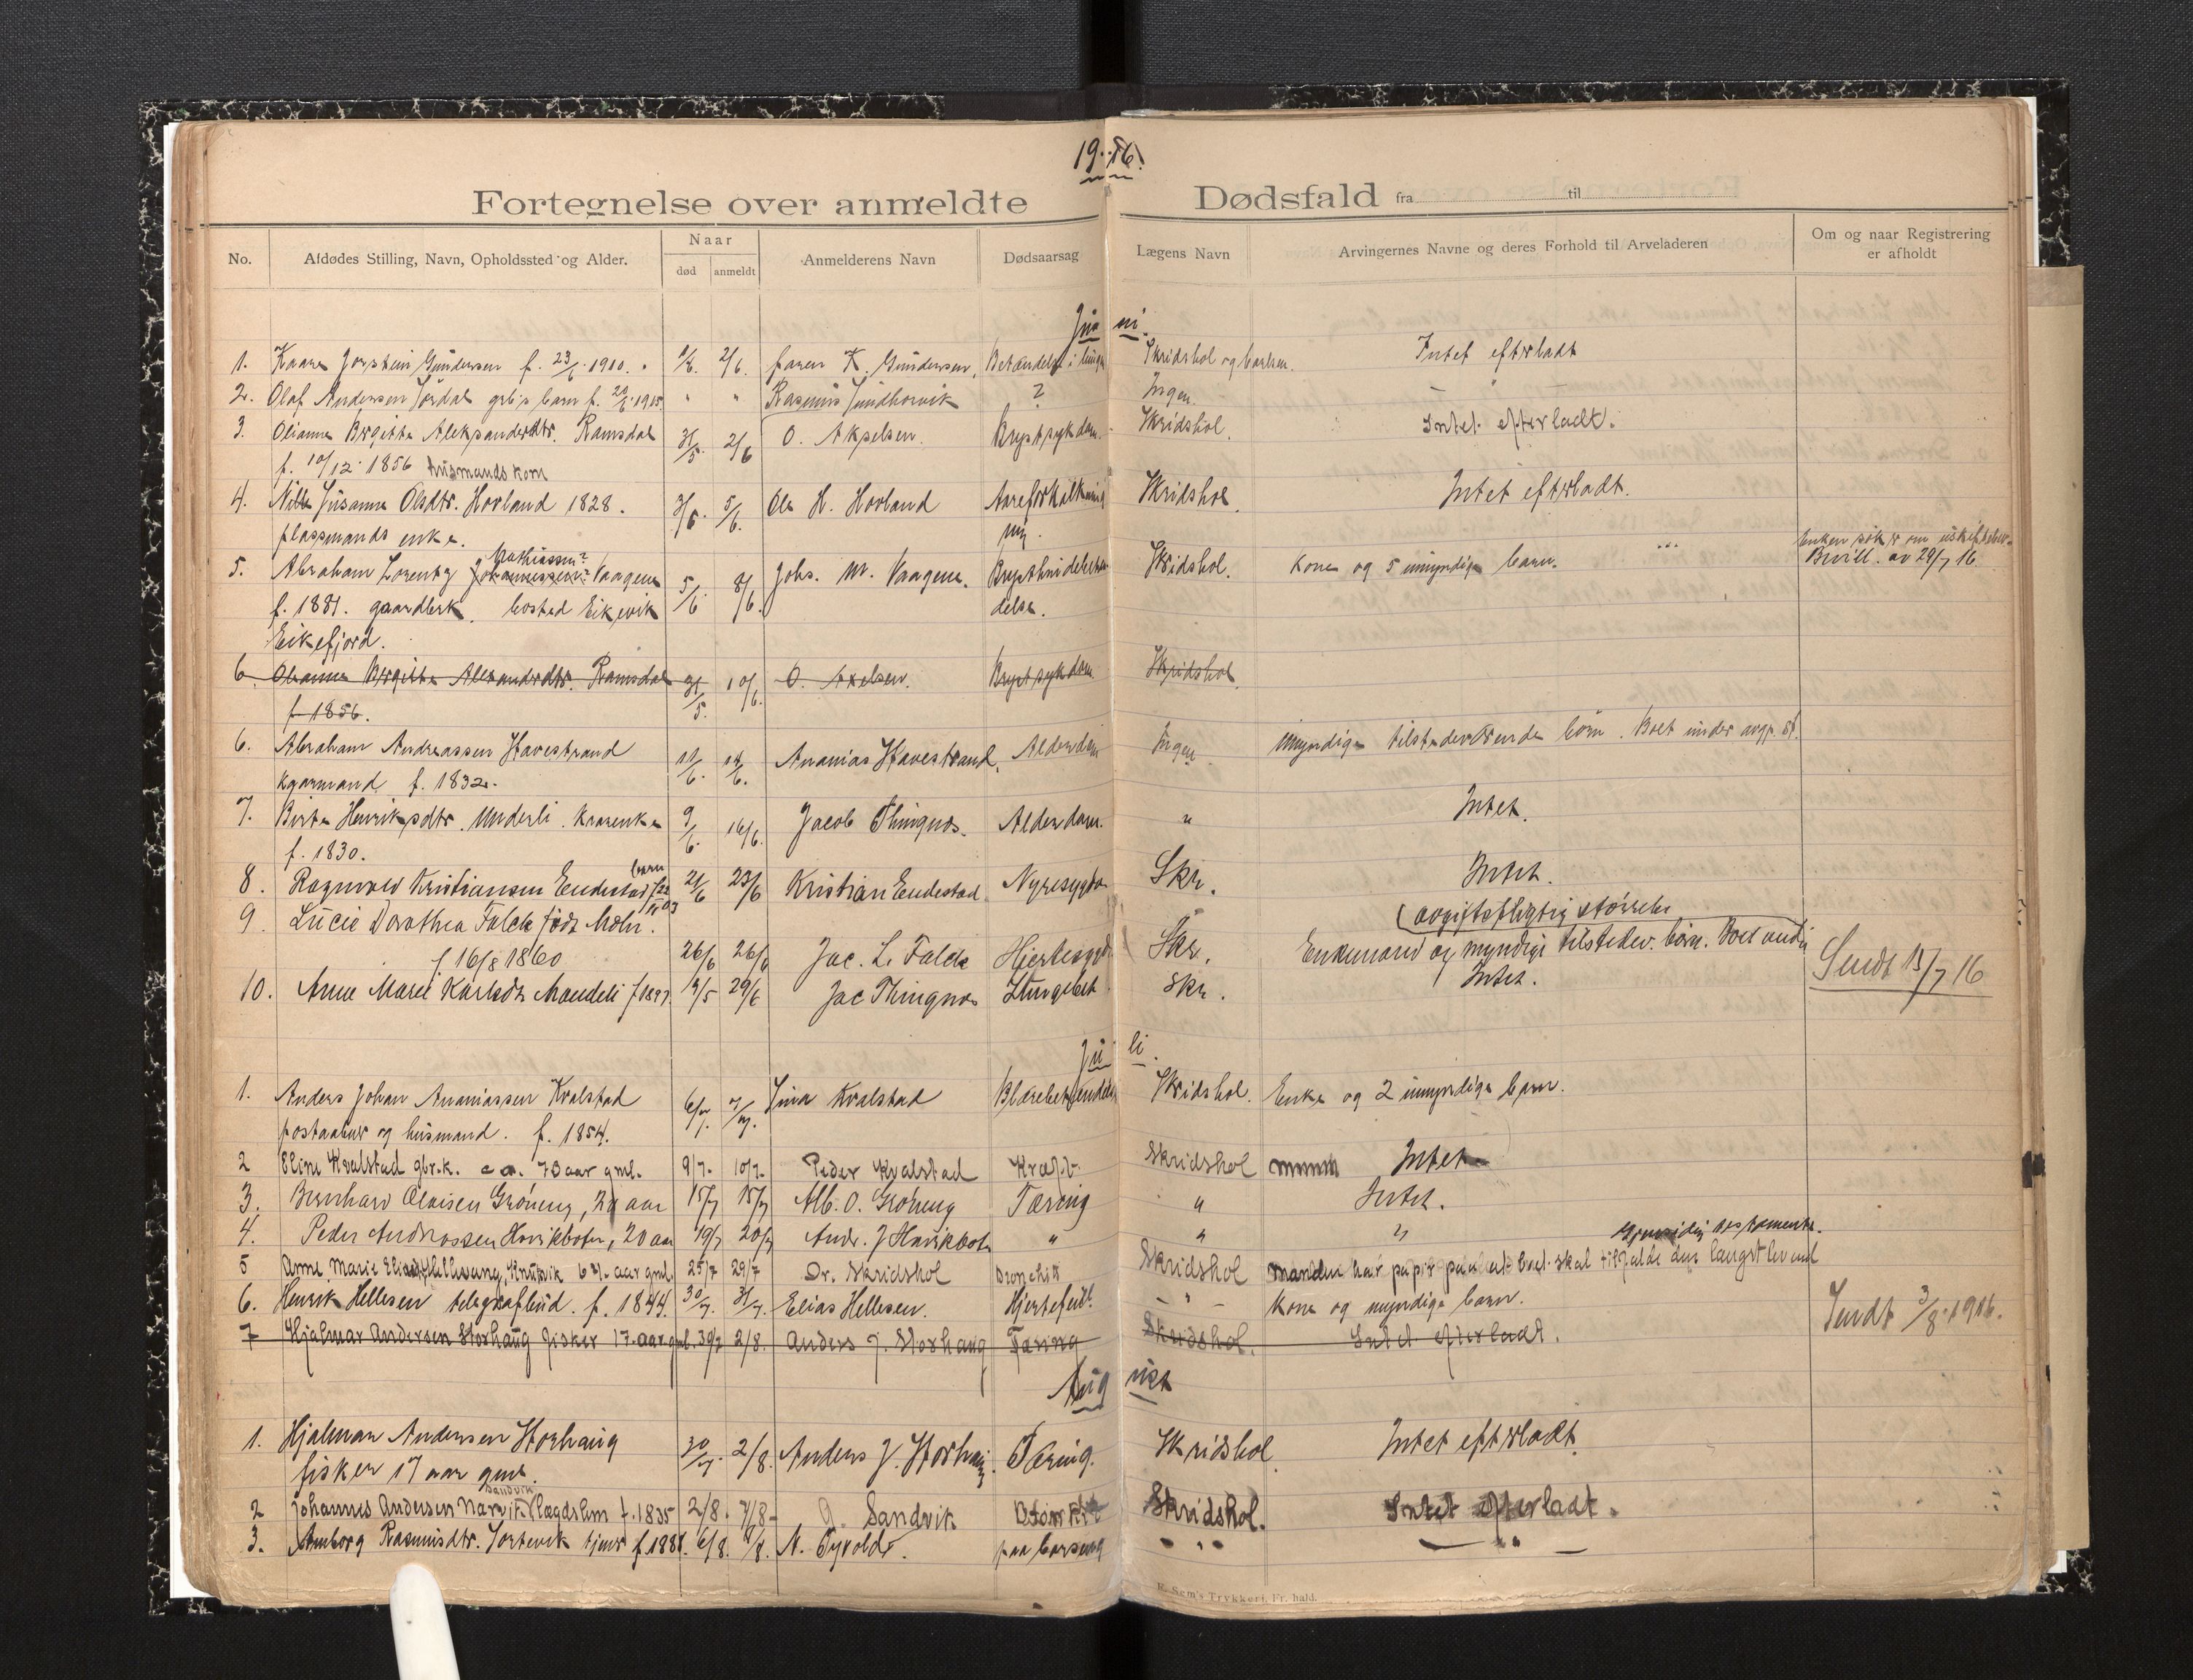 19 16.
Fortegnelse over anmeldte Dødsfald fra til
No. Afdødes Stilling, Navn, Opholdssted og Alder. Naar død anmeldt Anmelderens Navn Dødsaarsag Lægens Navn Arvingernes Navne og deres Forhold til Arveladeren Om og naar Registrering er afholdt
Juni.
1. Kaare Gundersen f. 23/6 1910. 1/6. 2/6. faren K. Gundersen. Betændelse i Skridshol og Intet efterladt
2. Olaf Andersen Sørdal barn f. 1915. " " Rasmus ? Ingen. — " —
3. Olianna Birgitta Aleksanderdtr. Ramsdal 31/5. 2/6 O. Akselsen. Brystsykdom. Skridshol. Intet efterladt.
f. 10/12. 1856 husmands kone
4. Susanna Olsdtr. Hovland 1828. 3/6. 5/6. Ole H. Hovland Aareforkalkning Skridshol. Intet efterladt.
plassmands enke.
Mathiassen?
5. Abraham Lorentz Johannessen? Vaagene 5/6. 8/6. Johs. M. Vaagene. Skridshol. Kone og 5 umyndige barn. Enken søker om uskiftebev.
f. 1881. gaardbrk. bosted Eikevik delse. Bevill. av 29/7 16
Eikefjord.
6. Olianna Birgitta Alexanderdtr. Ramsdal 31/5. 10/6. O. Axelsen. Brystsykdom Skridshol.
f. 1856.
6. Abraham Andreassen Havestrand 11/6. 14/6. Ananias Havestrand. Alderdom Ingen. Myndige tilstedeværende børn. Boet under avgp. st.
kaarmand f. 1832.
7. Birte Henriksdtr. Underli. Kaarenke 9/6. 16/6. Jacob Thingnes. Alderdom. " Intet.
f. 1830.
8. Ragnvald Kristiansen Endestad barn 21/6 23/6 Kristian Endestad Nyresygdom Skr. Intet.
9. Lucie Dorothea Falck født Mohr. (avgiftspligtig størrelse
f 16/8 1860 26/6 26/6 Jac. L. Falck Hjertesygd. Skr. Enkemand og myndige tilstedev. børn. Boet under
10. Anne Marie Karlsdtr Mandeli f 1897 29/6 Jac Thingnes Skr. Intet. Sendt 13/7 16
Juli.
1. Anders Johan Ananiassen Kvalstad 6/7. 7/7. Sina Kvalstad Skridshol. Enke og 2 umyndige barn.
postaabner og husmand. f. 1854.
2 Eline Kvalstad gbrk. ca. 73 aar gml. 9/7. 10/7. Peder Kvalstad Kræft. Skridshol Intet
3. Bernhard Olaisen Grøneng, aar 15/7 15/7 Alb. O. Grøneng Tæring " Intet.
4. Peder Andreassen Havikboten, 20 aar 19/7 20/7 Andr. J Havikbotn " " "
Gjensidig testamente.
5 Anne Marie Hellevang, Knutvik aar gml. 25/7 29/7 Dr. Skridshol Bronchit Skridshol Manden har papir paa at boet skal tilfalde den længstlevende
6. Henrik Hellesen telegrafbud. f. 1844. 30/7. 31/7. Elias Hellesen. Hjertefeil. — " — Kone og myndige barn. Sendt 3/8. 1916.
7 Hjalmar Andersen Storhaug fisker 17. aar gml. 30/7 2/8. Anders J. Storhaug Tæring Skridshol. Intet efterladt.
August
1. Hjalmar Andersen Storhaug 30/7. 2/8. Anders J. Storhaug. Tæring. Skridshol. Intet efterladt.
fisker 17 aar gml.
Sandvik
2 Johannes Andersen Narvik (lægdslem f. 1835 2/8. 7/8- Sandvik Skridshol. Intet efterladt.
3. Rasmusdtr. f. 1888. 6/8. N. paa barseng " " — " —
E. Sem's Trykkeri, Fr. hald.